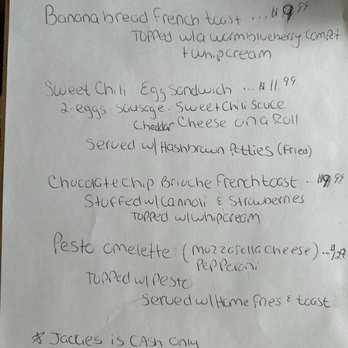 Banana bread French toast ... $9.99
Topped w/a warm blueberry compot
+ whip cream
Sweet Chili Egg Sandwich ... $11.99
2 eggs. sausage. sweet chili sauce
Cheddar Cheese on a Roll
Served w/ Hashbrown Patties (fried)
Chocolate chip Brioche French toast . $9.99
Stuffed w/ Cannoli & Strawberries
Topped w/ whip cream
Pesto omelette : (Mozzarella cheese) ...
Pepperoni
Topped w/ Pesto
Served w/ Home fries & toast
* Jackies is CASH Only